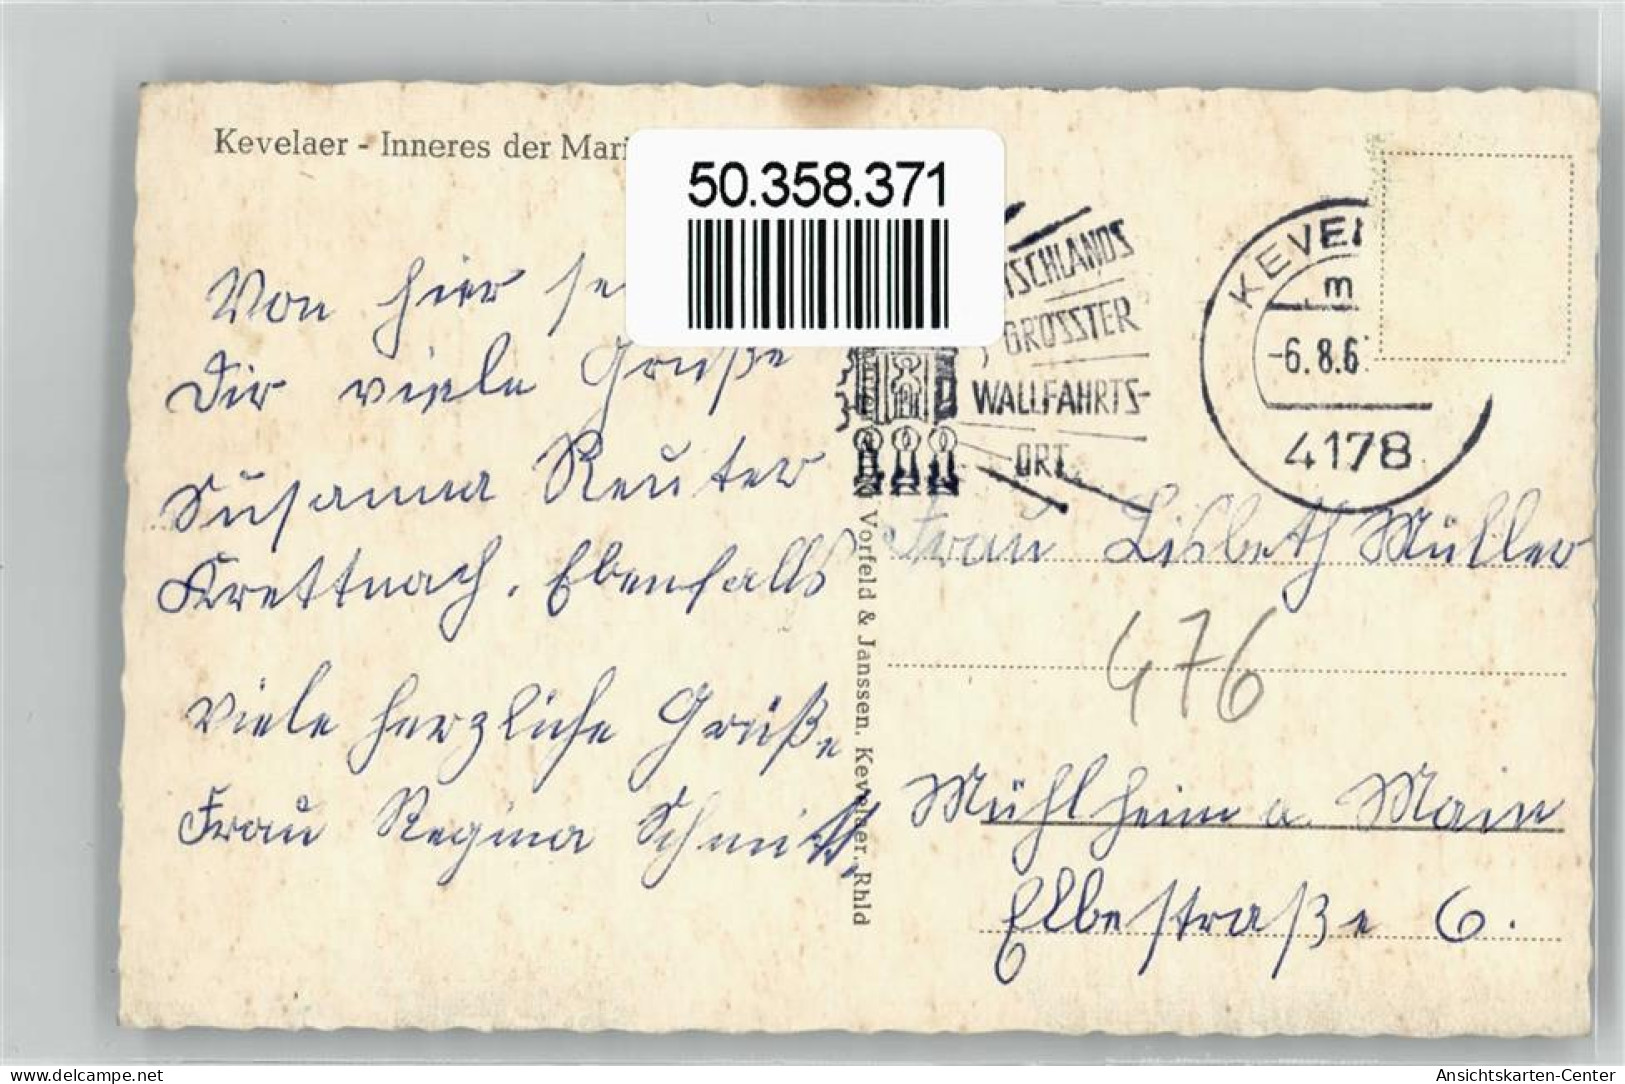 Kevelaer - Inneres der Mari
50.358.371
TSCHLANDS
GRÖSSTER
WALLFAHRTS-
ORT
KEVE
m
-6.8.6
4178
Von hier se
Dir viele Grüße
Susanna Reuter
Krettnach. Ebenfalls
Viele herzliche Grüße
Frau Regina Schmitt.
Vorfeld & Janssen. Kevelaer. Rhld
Frau Lisbeth Müller
476
Mühlheim a. Main
Elbestraße 6.
www.delcampe.net
Ansichtskarten-Center